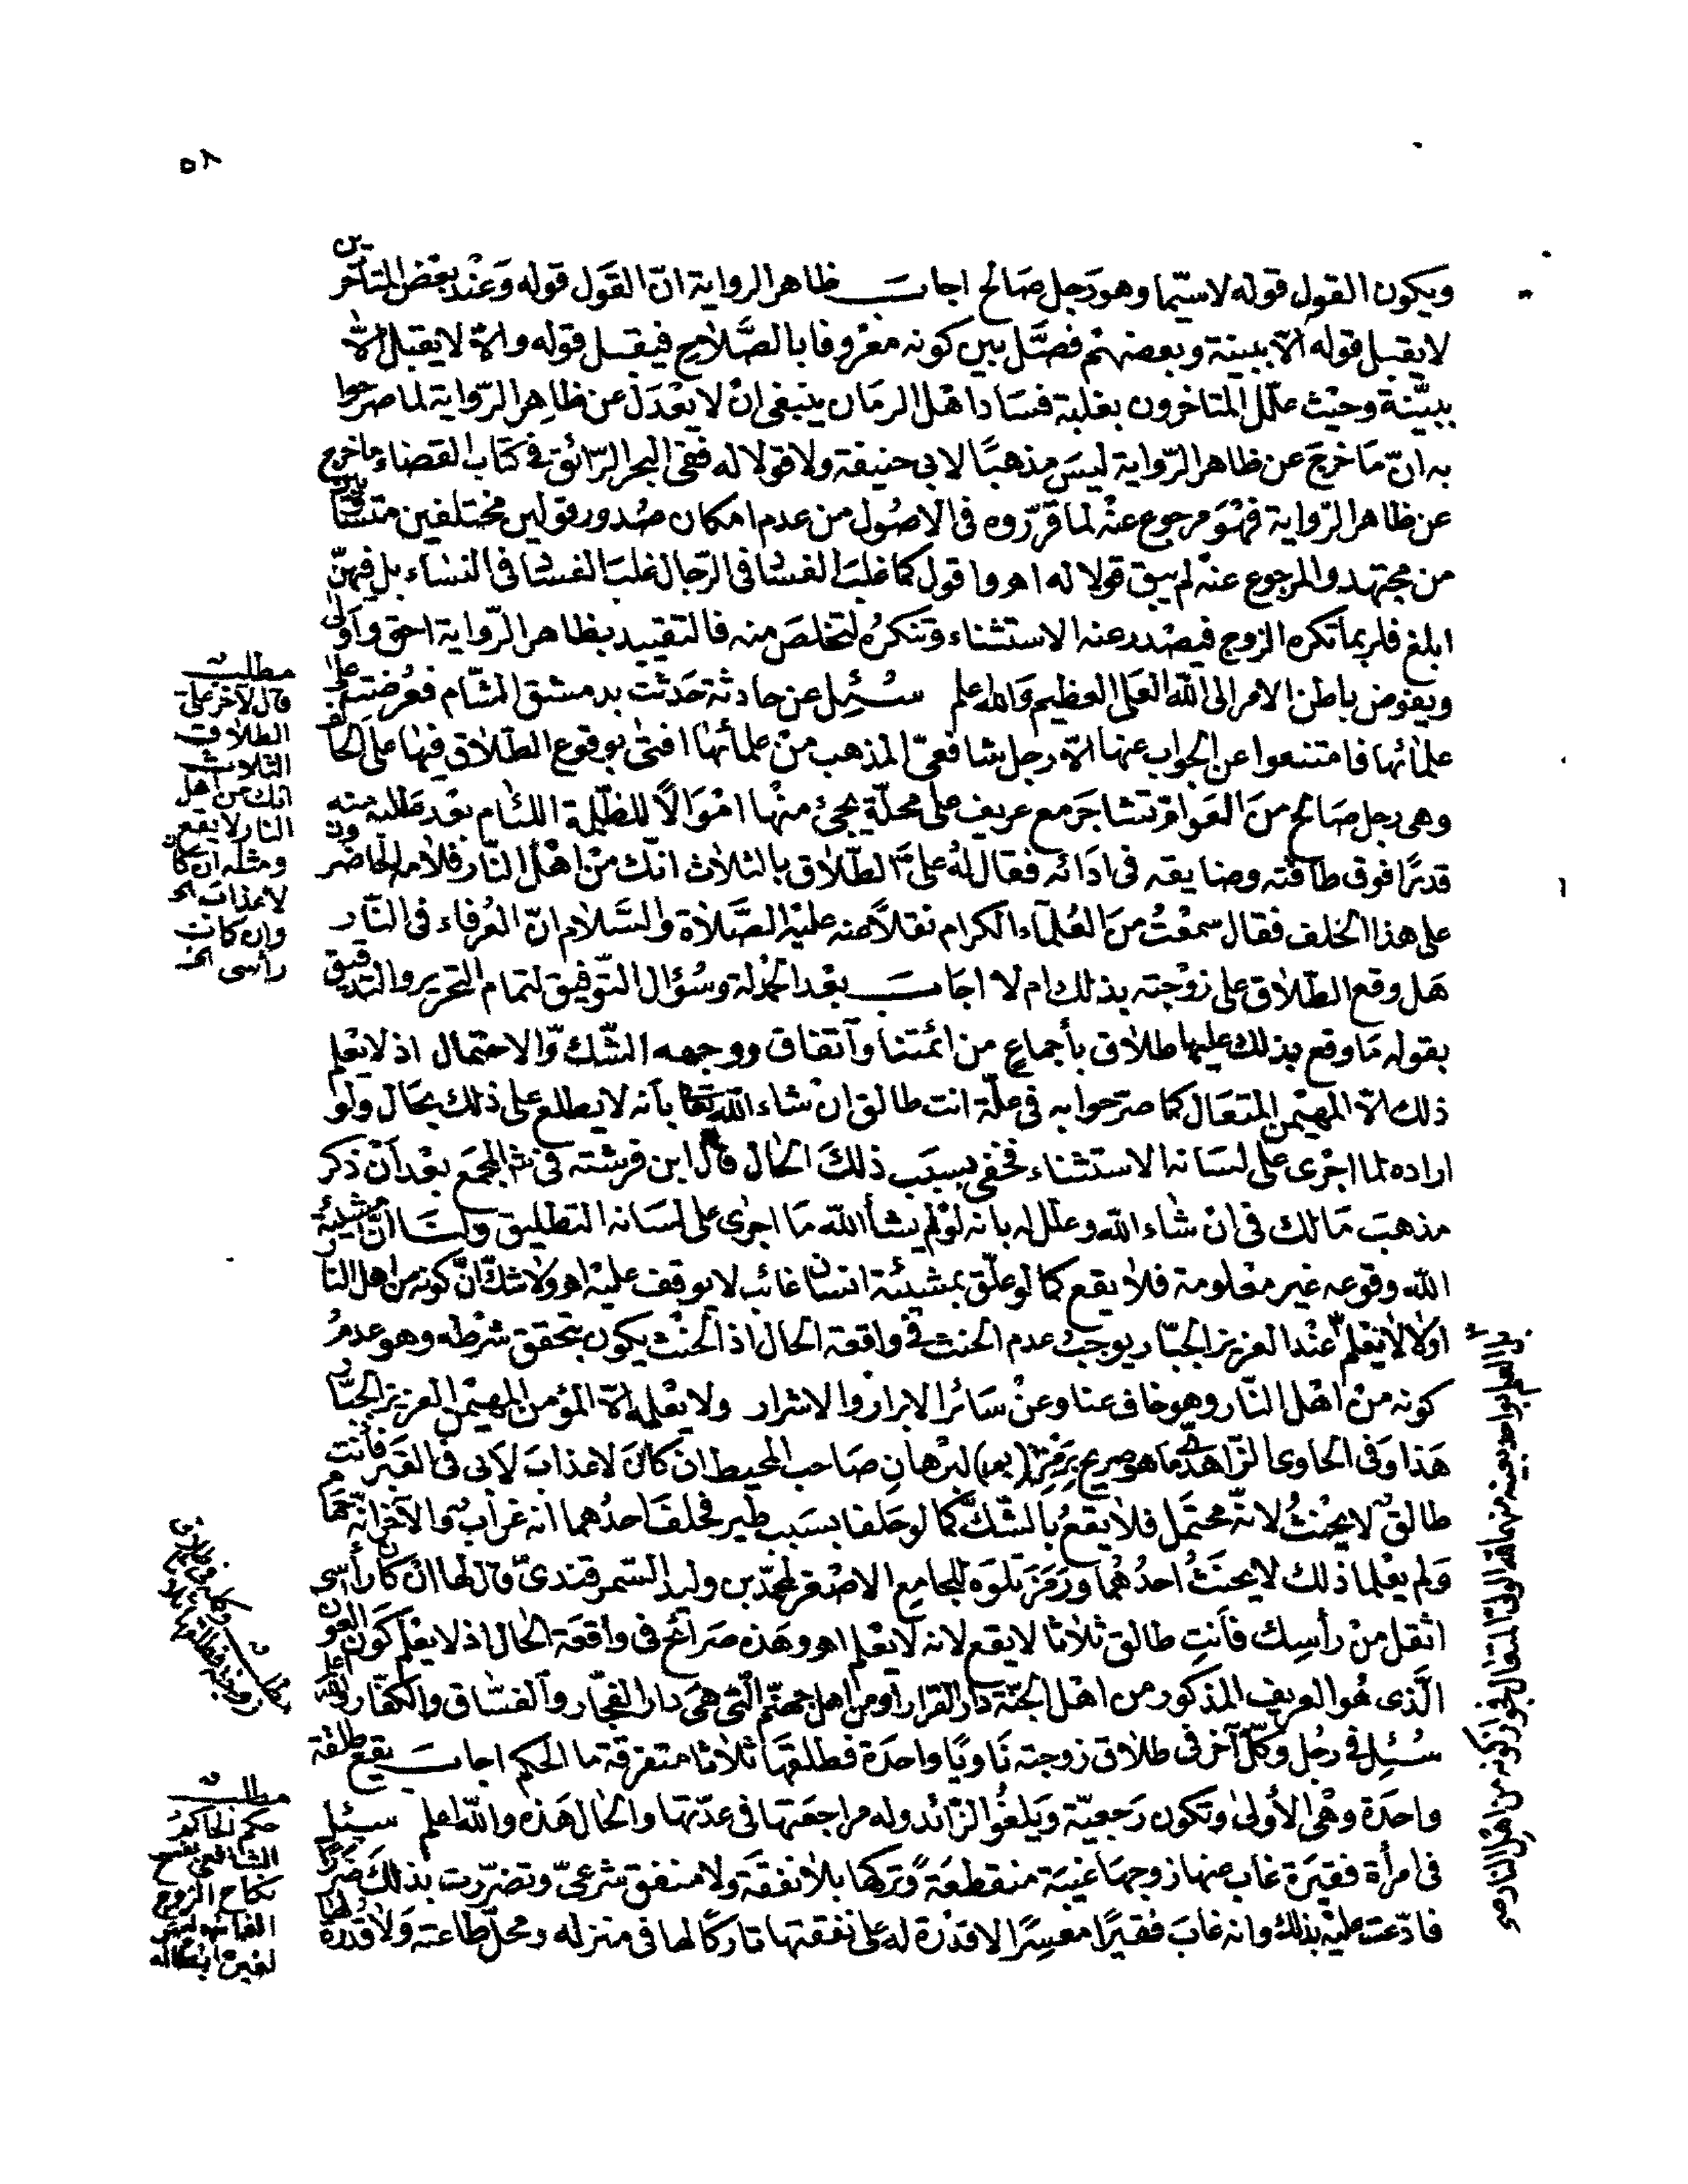 ٥٨
ويكون القول قوله لاسيّما وهو رَجل صَالح اجاب ظاهر الرواية انّ القَول قوله وَعنْد بعْض المتأخرين
لا يقبل قوله الّا ببينة وبعضهم فصَّل بين كونه معْروفا بالصَّلاح فيقبل قوله والّا لا يقبل الّا
ببيّنة وحيْث علّل المتاخرون بغلبة فسَاد اهْل الزمَان ينبغي انْ لا يعْدَل عن ظاهِر الرّواية لما صرحوا
به انّ مَا خرجَ عن ظاهر الرّواية ليسَ مذهبًا لابي حنيفة ولا قولا له ففي البحر الرّائق في كتَاب القضاء ما خرج
عن ظاهر الرّواية فهْوَ مرجوع عنْه لما قرّروه في الاصُول من عدم امكان صُدور قولين مختلفين متسَاويين
من مجتهد والمرجوع عنْه لم يبق قولا له اهـ واقول كما غلبَ الفسَاد في الرّجال غلبَ الفسَاد في النسَاء بل فيهنّ
ابلغ فلربما تكره الزوج فيصْدر عنه الاستثناء وَتنكرُه لتخلصَ منه فالتقييد بظاهر الرّواية احق وَاَولى
ويفوض باطن الامر الى الله العَلي العظيم وَالله اعلم سُئِل عن حادثة حَدثت بدمشق الشَّام فعُرضَت على
علمَائها فامتنعوا عن الجواب عنها الّا رجل شافعيّ المذهب منْ علمائهَا افتى بوقوع الطّلاق فيهَا على الحَالف
وهي رجل صَالح منَ العَوام تشاجَر مع عريف على محلّة يجيئ منْها امْوَالًا للظّلمة اللئام بعْد طلبه منه
قدرًا فوق طاقته وضايقه في ادَائه فقال لهُ عليَّ الطّلَاق بالثلاث انّك منْ اهْل النّار فلامه الحَاضرون
على هذا الحلف فقال سمعْتُ منَ العُلمآء الكرام نقلًا عنه عليْه الصَّلاة والسَّلام انّ العُرفاء في النّار
هَل وقع الطّلاق على زوْجته بذلك ام لا اجَاب بعْد الحمْدلة وسُؤال التّوفيق لتمام التحرير والتدقيق
بقوله مَا وقع بذلك عليها طلاق بأجماعٍ من ائمتنا وآتفاق ووجهه الشّك وَالاحتمال اذ لا يعْلم
ذلك الّا المهيْمن المتعَال كما صرّحوا به في علّة انت طالق انْ شاء الله تعَالى بأنه لا يطلع على ذلك بحَال ولو
اراده لما اجْرى على لسَانه الاستثناء فخفي بسبَب ذلكَ الحَال قال ابن فرشته في شرح المجمَع بعْد اَنْ ذكر
مذهبَ مَالك في انْ شاء الله وعلّله بانه لوْ لم يشأ الله مَا اجرى على لسَانه التطليق ولنَا انّ مشيئة
الله وقوعه غير معْلومة فلا يقع كما لو علّق بمشيئة انسَان غائب لا يوقف عليْه اهـ ولا شكّ انّ كونه من اهل النار
اولا لا يعْلم عنْد العزيز الجبّار يوجبُ عدم الحنث في واقعة الحال اذ الحنْث يكون بتحقق شرْطه وهو عدمُ
كونه منْ اهْل النّار وهو خاف عنا وعنْ سَائر الابرار والاشرار ولا يعْلمه الّا المؤمن المهيْمن العزيز الجبّار
هَذا وَفي الحاوى الزّاهدي مَا هو صريح برَمْز (بم) لبرْهان صَاحب المحيط انْ كانَ لاعذابَ لابى في القبَر فأنت
طالقٌ لا يحْنثُ لانهّ محتمَل فلا يقعُ بالشّكّ كما لو حَلفا بسَبب طيْر فحلفَ احدُهما انه غرابٌ والآخر انه حمَام
وَلم يعْلما ذلك لا يحنَثُ احدُهُما ورَمَز تلوَه للجامع الاصْغر لمحمّد بن وليد السّمرقندىّ قال لها انْ كان رأسى
اثقل منْ رأسِك فأنتِ طالق ثلاثا لا يقع لانه لا يعْلم اهـ وهَذه صَرائح في واقعَة الحَال اذ لا يعْلم كَون
الَّذى هُو العريف المذكور من اهْل الجنّة دَار القرار أو من اهل جهنّم الّتي هيَ دار الفجّار وآلفسّاق والكفّار
سُئِل في رجُل وكّل آخرَ في طلاق زوجته نَاويًا واحدَة فطلقهَا ثلاثا متفرقة ما الحكم اجاب يقع طلقة
واحدَة وهْي الأولى وتكون رَجعيّة ويَلغو الزّائد وله مراجعَتها في عدّتها والحَال هَذه والله اعلم سئِل
في امرأة فقيَرة غاب عنها زوجهَا غيْبَة منقطعَة وَتركها بلا نفقَة ولا منفق شرْعيّ وتضرّرت بذلكَ ضررًا
فادّعت عليْه بذلك وانه غابَ فقيرًا معسِرًا لا قدْرة له على نفقتها تاركًا لها في منزله ومحلّ طاعته وَلا قدرة لها
مطلب
قال لآخر علىّ
الطلاق
الثلاث
انك من اهل
النار لا يقع
ومثله ان كان
لا عذاب الخ
وان كانت
رأسى الخ
مطلب
حكم الحاكم
الشافعي بفسخ
نكاح الزوج
الغائب ليس
لغيره ابطاله